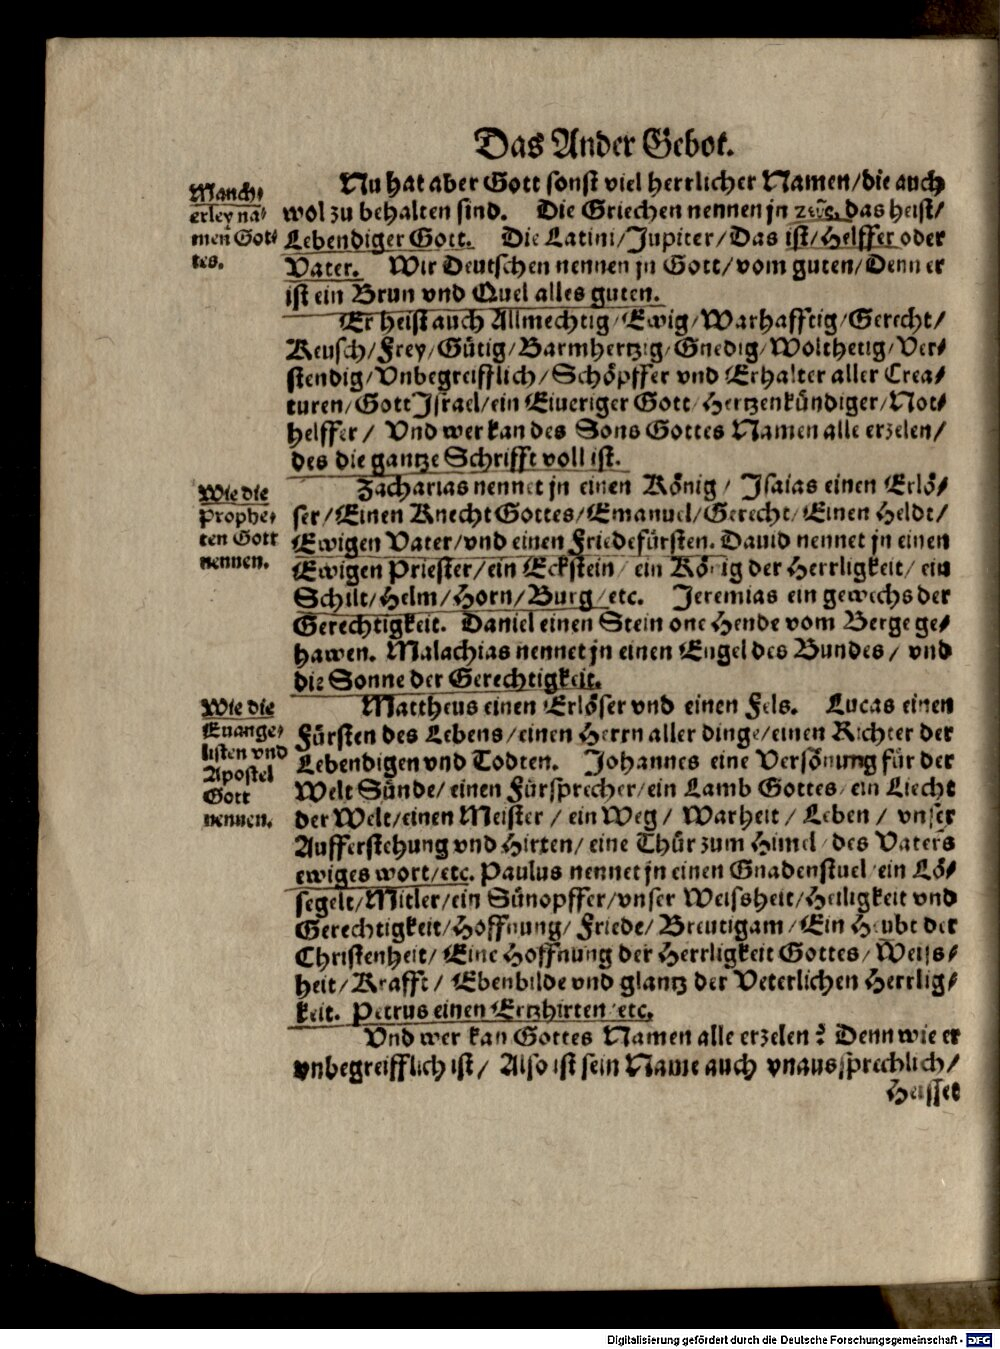 Das Ander Gebot.
Nu hat aber Gott sonst viel herrlicher Namen/die auch
wol zu behalten sind. Die Griechen nennen jn das heist/
Lebendiger Gott. Die Latini/Jupiter/Das ist/Helffer oder
Vater. Wir Deutschen nennen jn Gott/vom guten/Denn er
ist ein Brun vnd Quel alles guten.
Manch-
erley na-
men Got-
tes.
Er heist auch Allmechtig/Ewig/Warhafftig/Gerecht/
Keusch/Frey/Gütig/Barmhertzig/Gnedig/Wolthetig/Ver-
stendig/Vnbegreifflich/Schöpffer vnd Erhalter aller Crea-
turen/Gott Jsrael/ein Eiueriger Gott/Hertzenkündiger/Not-
helffer/ Vnd wer kan des Sons Gottes Namen alle erzelen/
des die gantze Schrifft voll ist.
Zacharias nennet jn einen König/ Jsaias einen Erlö-
ser/Einen Knecht Gottes/Emanuel/Gerecht/Einen Heldt/
Ewigen Vater/vnd einen Friedefürsten. Dauid nennet jn einen
Ewigen Priester/ein Eckstein/ein König der Herrligkeit/ein
Schilt/Helm/Horn/Burg/etc. Jeremias ein gewechs der
Gerechtigkeit. Daniel einen Stein one Hende vom Berge ge-
hawen. Malachias nennet jn einen Engel des Bundes/ vnd
die Sonne der Gerechtigkeit.
Wie die
Prophe-
ten Gott
nennen.
Mattheus einen Erlöser vnd einen Fels. Lucas einen
Fürsten des Lebens/einen Herrn aller dinge/einen Richter der
Lebendigen vnd Todten. Johannes eine Versönung für der
Welt Sünde/einen Fürsprecher/ein Lamb Gottes/ein Liecht
der Welt/einen Meister/ein Weg/ Warheit/ Leben/ vnser
Aufferstehung vnd Hirten/ eine Thür zum Himel/des Vaters
ewiges wort/etc. Paulus nennet jn einen Gnadenstuel/ein Lö-
segelt/Mitler/ein Sünopffer/vnser Weisheit/Heiligkeit vnd
Gerechtigkeit/Hoffnung/Friede/Breutigam/Ein Heubt der
Christenheit/Eine Hoffnung der Herrligkeit Gottes/Weiss-
heit/Krafft/ Ebenbilde vnd glantz der Veterlichen Herrlig-
keit. Petrus einen Ertzhirten/etc.
Wie die
Euange-
listen vnd
Apostel
Gott
nennen.
Vnd wer kan Gottes Namen alle erzelen? Denn wie er
vnbegreifflich ist/ Also ist sein Name auch vnaussprechlich/
Heisset
Digitalisierung gefördert durch die Deutsche Forschungsgemeinschaft - DFG